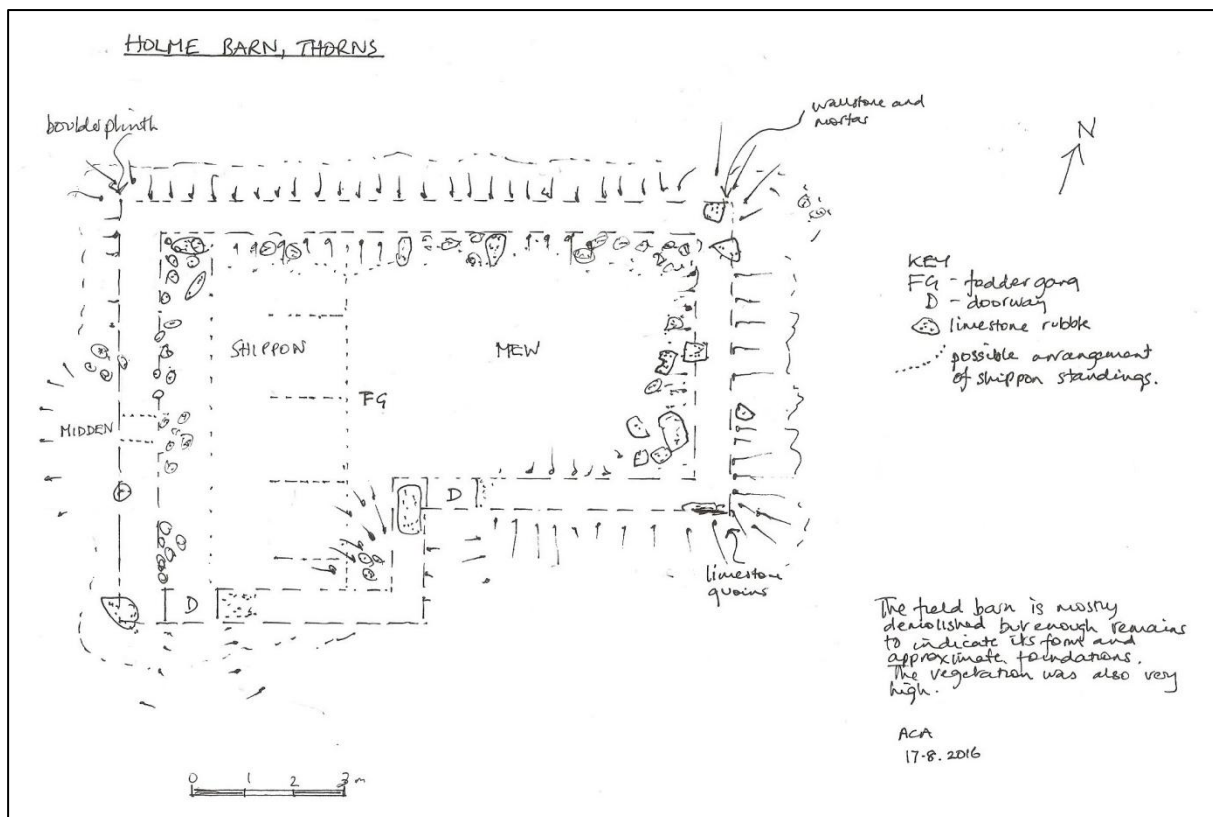 HOLME BARN, THORNS
boulder plinth
wallstone and
mortar
N
KEY
FG - foddergang
D - doorway
limestone rubble
possible arrangement
of shippon standings.
SHIPPON
MEW
FG
MIDDEN
D
D
limestone
quoins
The field barn is mostly
demolished but enough remains
to indicate its form and
approximate foundations.
The vegetation was also very
high.
ACA
17.8.2016
0 1 2 3 m